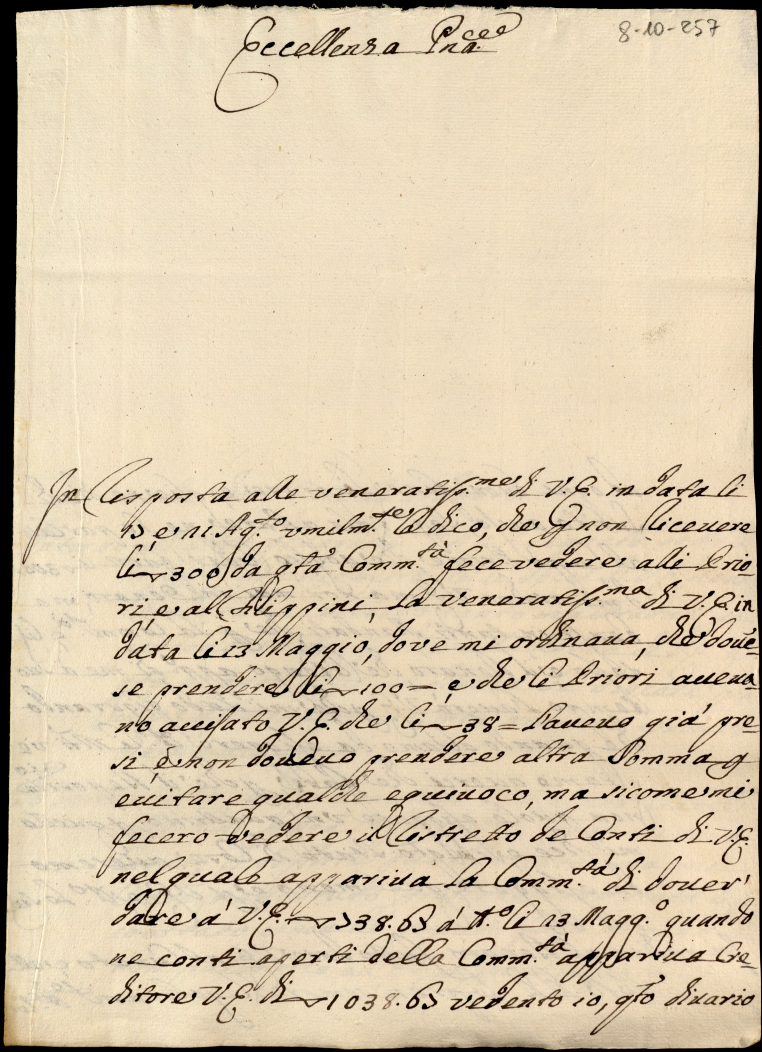 8-10-257
Eccellenza Pna.cee
In Risposta alle veneratiss.me di V.E. in data li
13, e 21 Ag.to vmilm.te le dico, che p non Riceuere
li 300 da qta Comm.tà fece vedere alli Prio-
ri, e al Filippini, la veneratiss.ma di V.E. in
data li 13 Maggio, dove mi ordinaua, che doue-
se prendere li 100= e che li Priori aueua-
no auisato V.E. che li 38= l'aueuo già pre-
si, e non doueuo prendere altra somma p
euitare qualche equiuoco, ma sicome mi
fecero vedere il Ristretto de Conti di V.E.
nel quale appariua la Comm.tà di douer
dare á V.E. 538.65 á tt.o li 13 Magg.o quando
ne conti aperti della Comm.tà appariua Cre-
ditore V.E. di 1038.65 vedento io, qto diuario